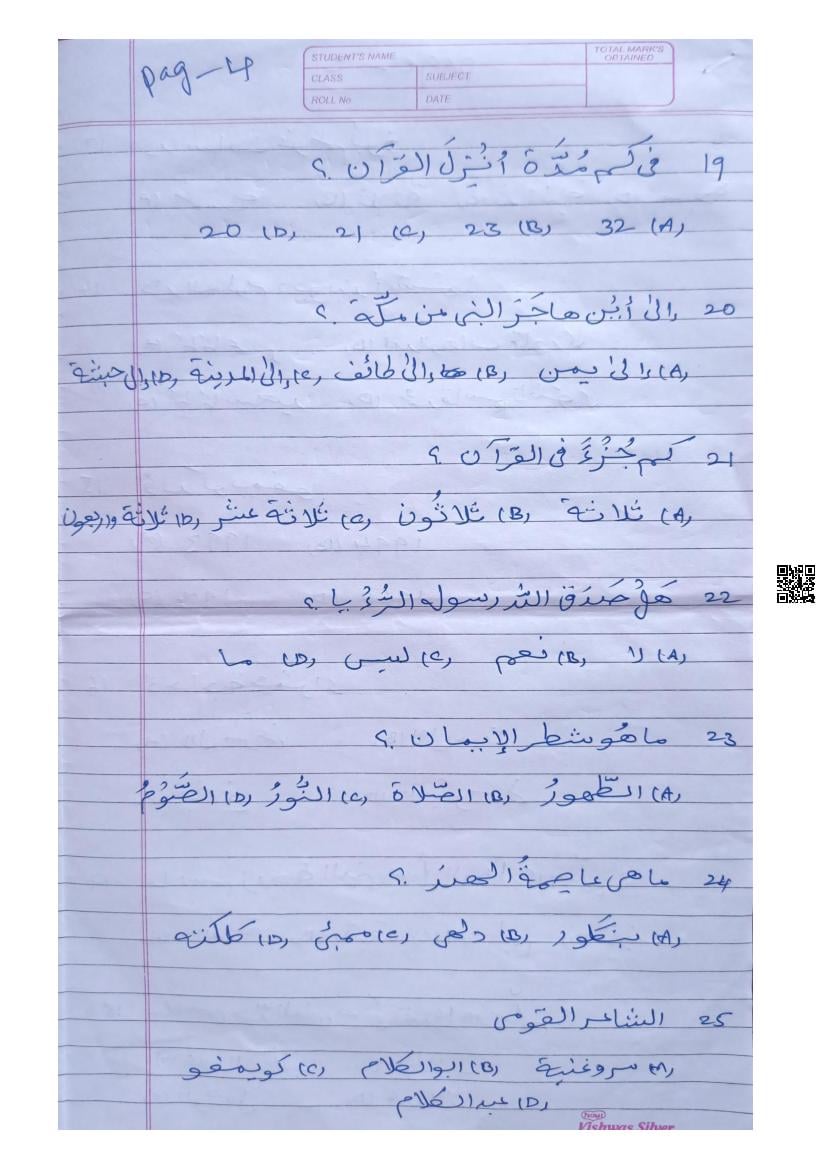 pag-4
STUDENT'S NAME
TOTAL MARK'S OBTAINED
CLASS SUBJECT
ROLL No DATE
19 فى كم مُدَّة اُنْزِلَ القرآن ؟
(A) 32 (B) 23 (C) 21 (D) 20
20 إلىٰ أيْن هاجَرَ النبى من مكّة ؟
(A) إلىٰ يمن (B) إلىٰ طائف (C) إلىٰ المدينة (D) إلى حبشة
21 كم جُزْءً فى القرآن ؟
(A) ثلاثة (B) ثلاثُون (C) ثلاثة عشر (D) ثلاثة واربعون
22 هَلْ صَدَقَ الله رسوله الرُّءْيا ؟
(A) لا (B) نعم (C) ليس (D) ما
23 ما هُو شطر الإيمان ؟
(A) الطّهورُ (B) الصّلاة (C) النُّورُ (D) الصَّوْمُ
24 ما هى عاصِمةُ الهند ؟
(A) بنگلور (B) دلهى (C) ممبئى (D) كلكته
25 الشاعر القومى
(A) سروغنية (B) ابوالكلام (C) كويمفو
(D) عبدالكلام
Vishwas Silver